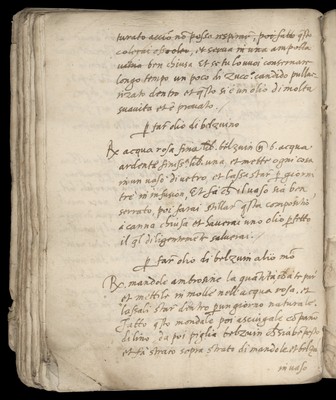 turato acciò nõ possa respirar, poi fatto q̃sto
colarai et serua in una ampolla
ben chiusa et se tu lo uoi conseruar
longo tempo un poco di zuc.º candido pulue
rizato dentro et q̃sto si è un olio di molta
suauità et è prouato.
p far olio di belzuino
℞ acqua rosa fina lib. belzuin 6. acqua
ardente finiss.ª lib. una, et mette ogni cosa
in un uaso di uetro, et lassa star p giorni
tre in infusion, et fà ch'l uaso sia ben
serrato, poi farai stillar q̃sta compositiõ
à canna chiusa et hauerai uno olio p̃fetto
il q̃l diligentemẽte saluerai.
p far olio di belzuin alio mõ
℞. mandole ambrosine la quantità che te par
et mettile in molle nell'acqua rosa, et
lassali star dentro p un giorno naturale.
fatto q̃sto mandole poi asciugale cõ pãno
di lino, da poi piglia belzuin
et fà strato sopra strato di mandole et belzu.
in uaso